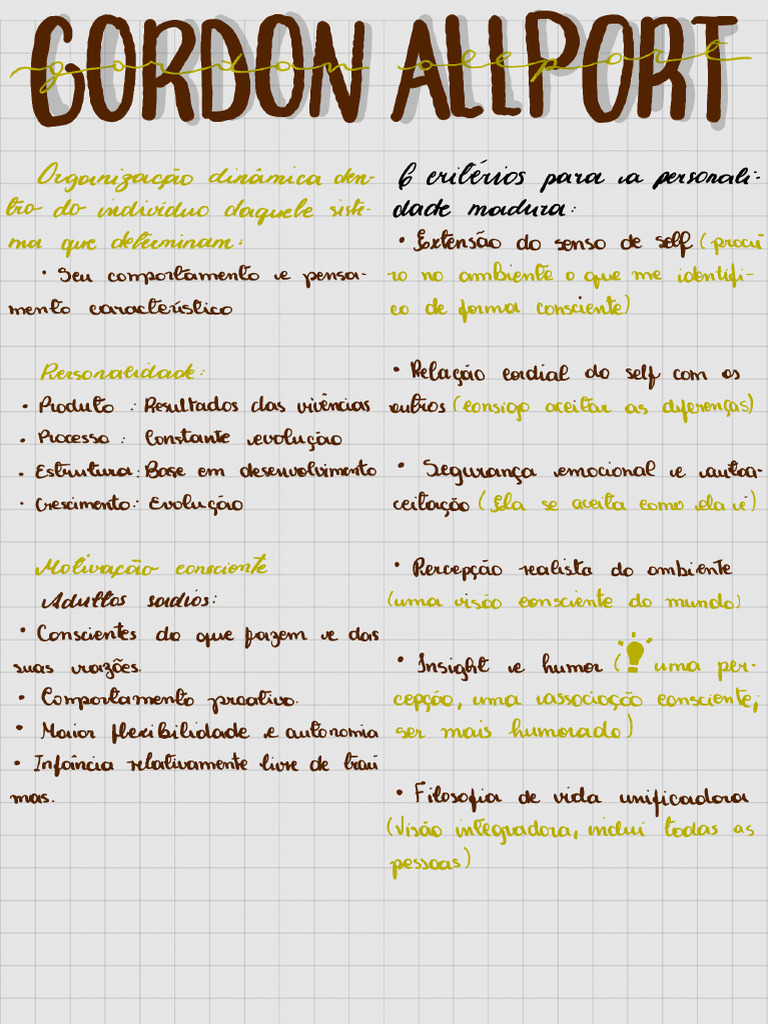 GORDON ALLPORT
gordon allport
Organização dinâmica den-
tro do indivíduo daquele siste-
ma que determinam:
• Seu comportamento e pensa-
mento característico
Personalidade:
• Produto : Resultados das vivências
• Processo : Constante evolução
• Estrutura: Base em desenvolvimento
• Crescimento: Evolução
Motivação consciente
Adultos sadios:
• Conscientes do que fazem e das
suas razões.
• Comportamento proativo.
• Maior flexibilidade e autonomia
• Infância relativamente livre de trau
mas.
6 critérios para a personali-
dade madura:
• Extensão do senso de self (procu
ro no ambiente o que me identifi-
co de forma consciente)
• Relação cordial do self com os
outros (consigo aceitar as diferenças)
• Segurança emocional e autoa-
ceitação (Ela se aceita como ela é)
• Percepção realista do ambiente
(uma visão consciente do mundo)
• Insight e humor ( uma per-
cepção, uma associação consciente,
ser mais humorado)
• Filosofia de vida unificadora
(Visão integradora, inclui todas as
pessoas)